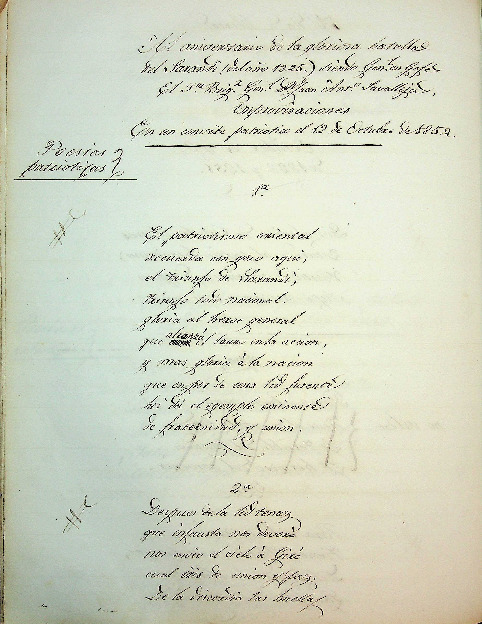 Al aniversario de la gloriosa batalla
del Sarandí (del año 1825.) siendo Genl. en Gefe
El Sr. Brigr. Genl. D. Juan Anto. Lavalleja,
Improvisaciones
En un convite patriotico el 12 de Octubre de 1852.
Poesias
patrioticas
1a
El patriotismo oriental
recuerda con gozo aqui,
el triunfo de Sarandí,
triunfo todo nacional.
gloria al heroe general
que alcanzó el lauro en la accion,
y mas gloria à la nacion
que en pos de una lid
dió el egemplo eminente
de fraternidad, y union.
2a
Despues de la lid tenaz
que infausta nos devoró
nos envio el cielo à Giró
cual iris de union y paz.
De la discordia las huellas